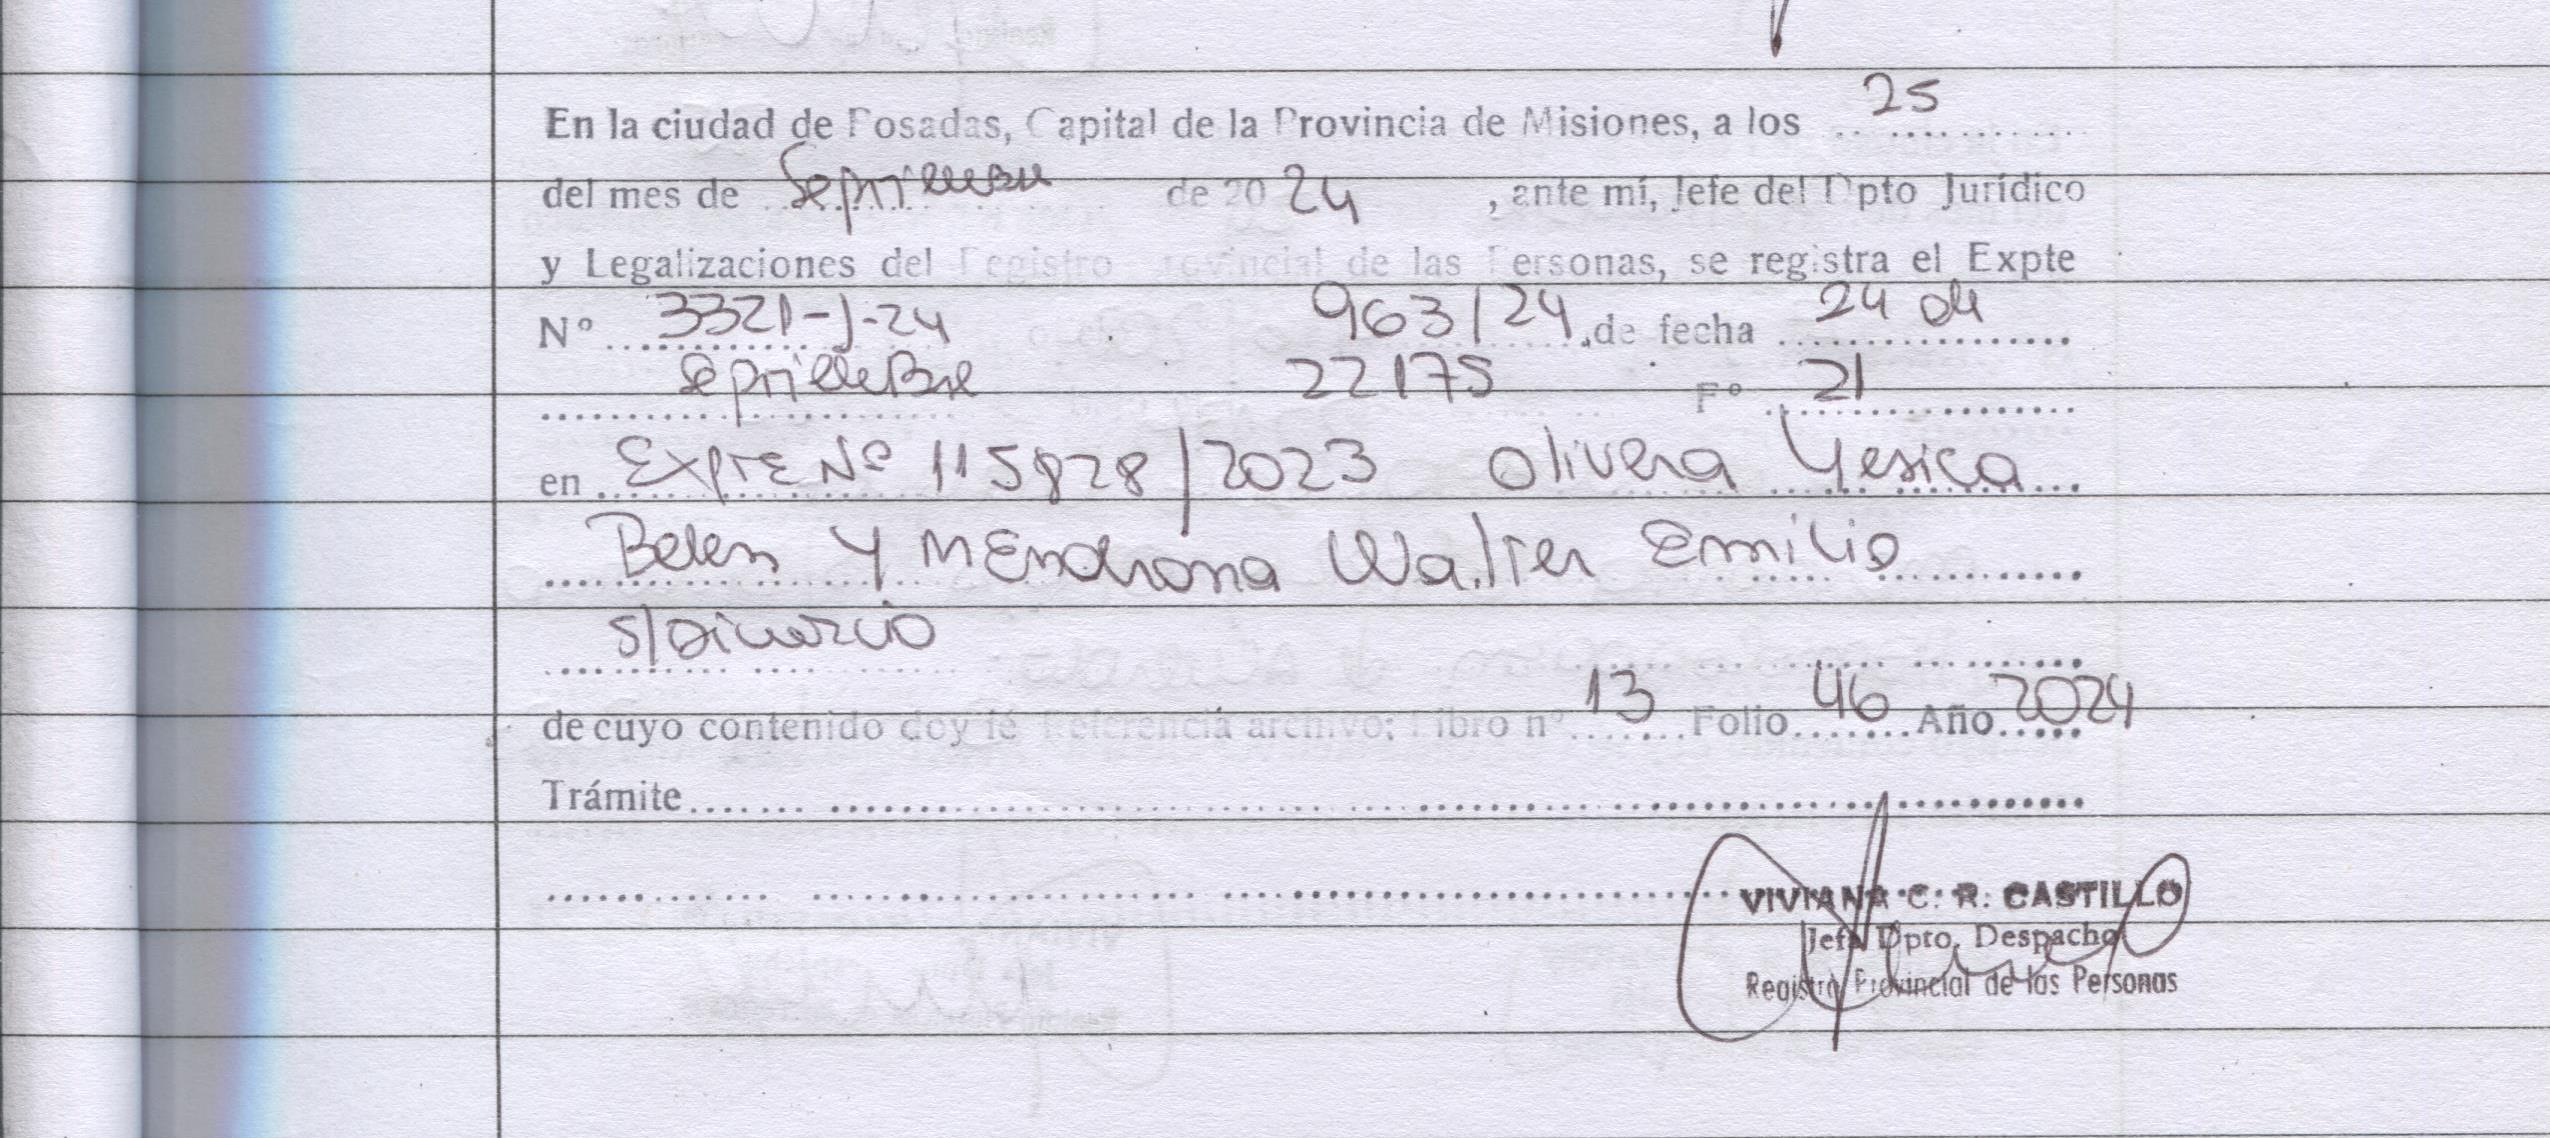 En la ciudad de Posadas, Capital de la Provincia de Misiones, a los 25
del mes de Septiembre de 20 24, ante mí, Jefe del Dpto Jurídico
y Legalizaciones del Registro Provincial de las Personas, se registra el Expte
N° 3321-J-24 963/24, de fecha 24 de
Septiembre 22175 F° 21
en Expte Nº 115828/2023 Olivera Yesica
Belen y Mendrona Walter Emilio
s/Divorcio
de cuyo contenido doy fé Referenciá archivo: Libro n° 13 Folio 46 Año 2024
Trámite
VIVIANA C. R. CASTILLO
Jefa Dpto. Despacho
Registro Provincial de las Personas